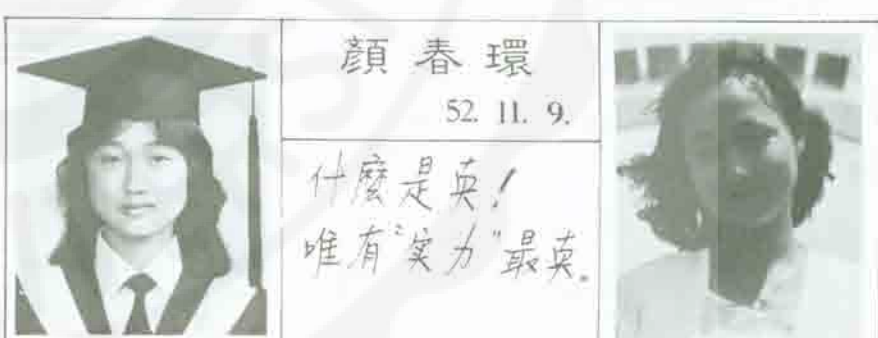 顏春環
52. 11. 9.
什麼是真！
唯有"実力"最真。